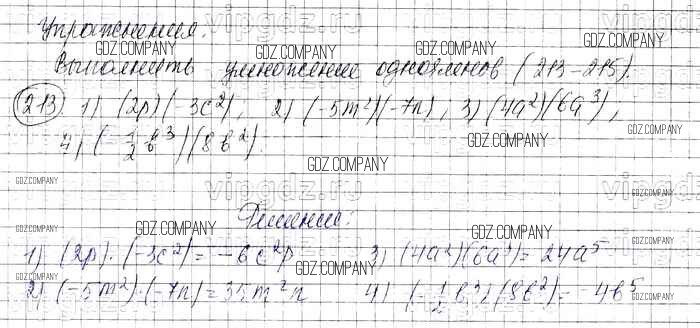 Упражнения.
Выполнить умножение одночленов (213-215).
213 1) (2p)(-3c²), 2) (-5m²)(-7n), 3) (4a²)(6a³),
4) (-1/2 b³)(8b²).
Решение:
1) (2p)·(-3c²)=-6c²p 3) (4a²)(6a³)=24a⁵
2) (-5m²)·(-7n)=35m²n 4) (-1/2 b³)(8b²)=-4b⁵
vipgdz.ru
GDZ.COMPANY